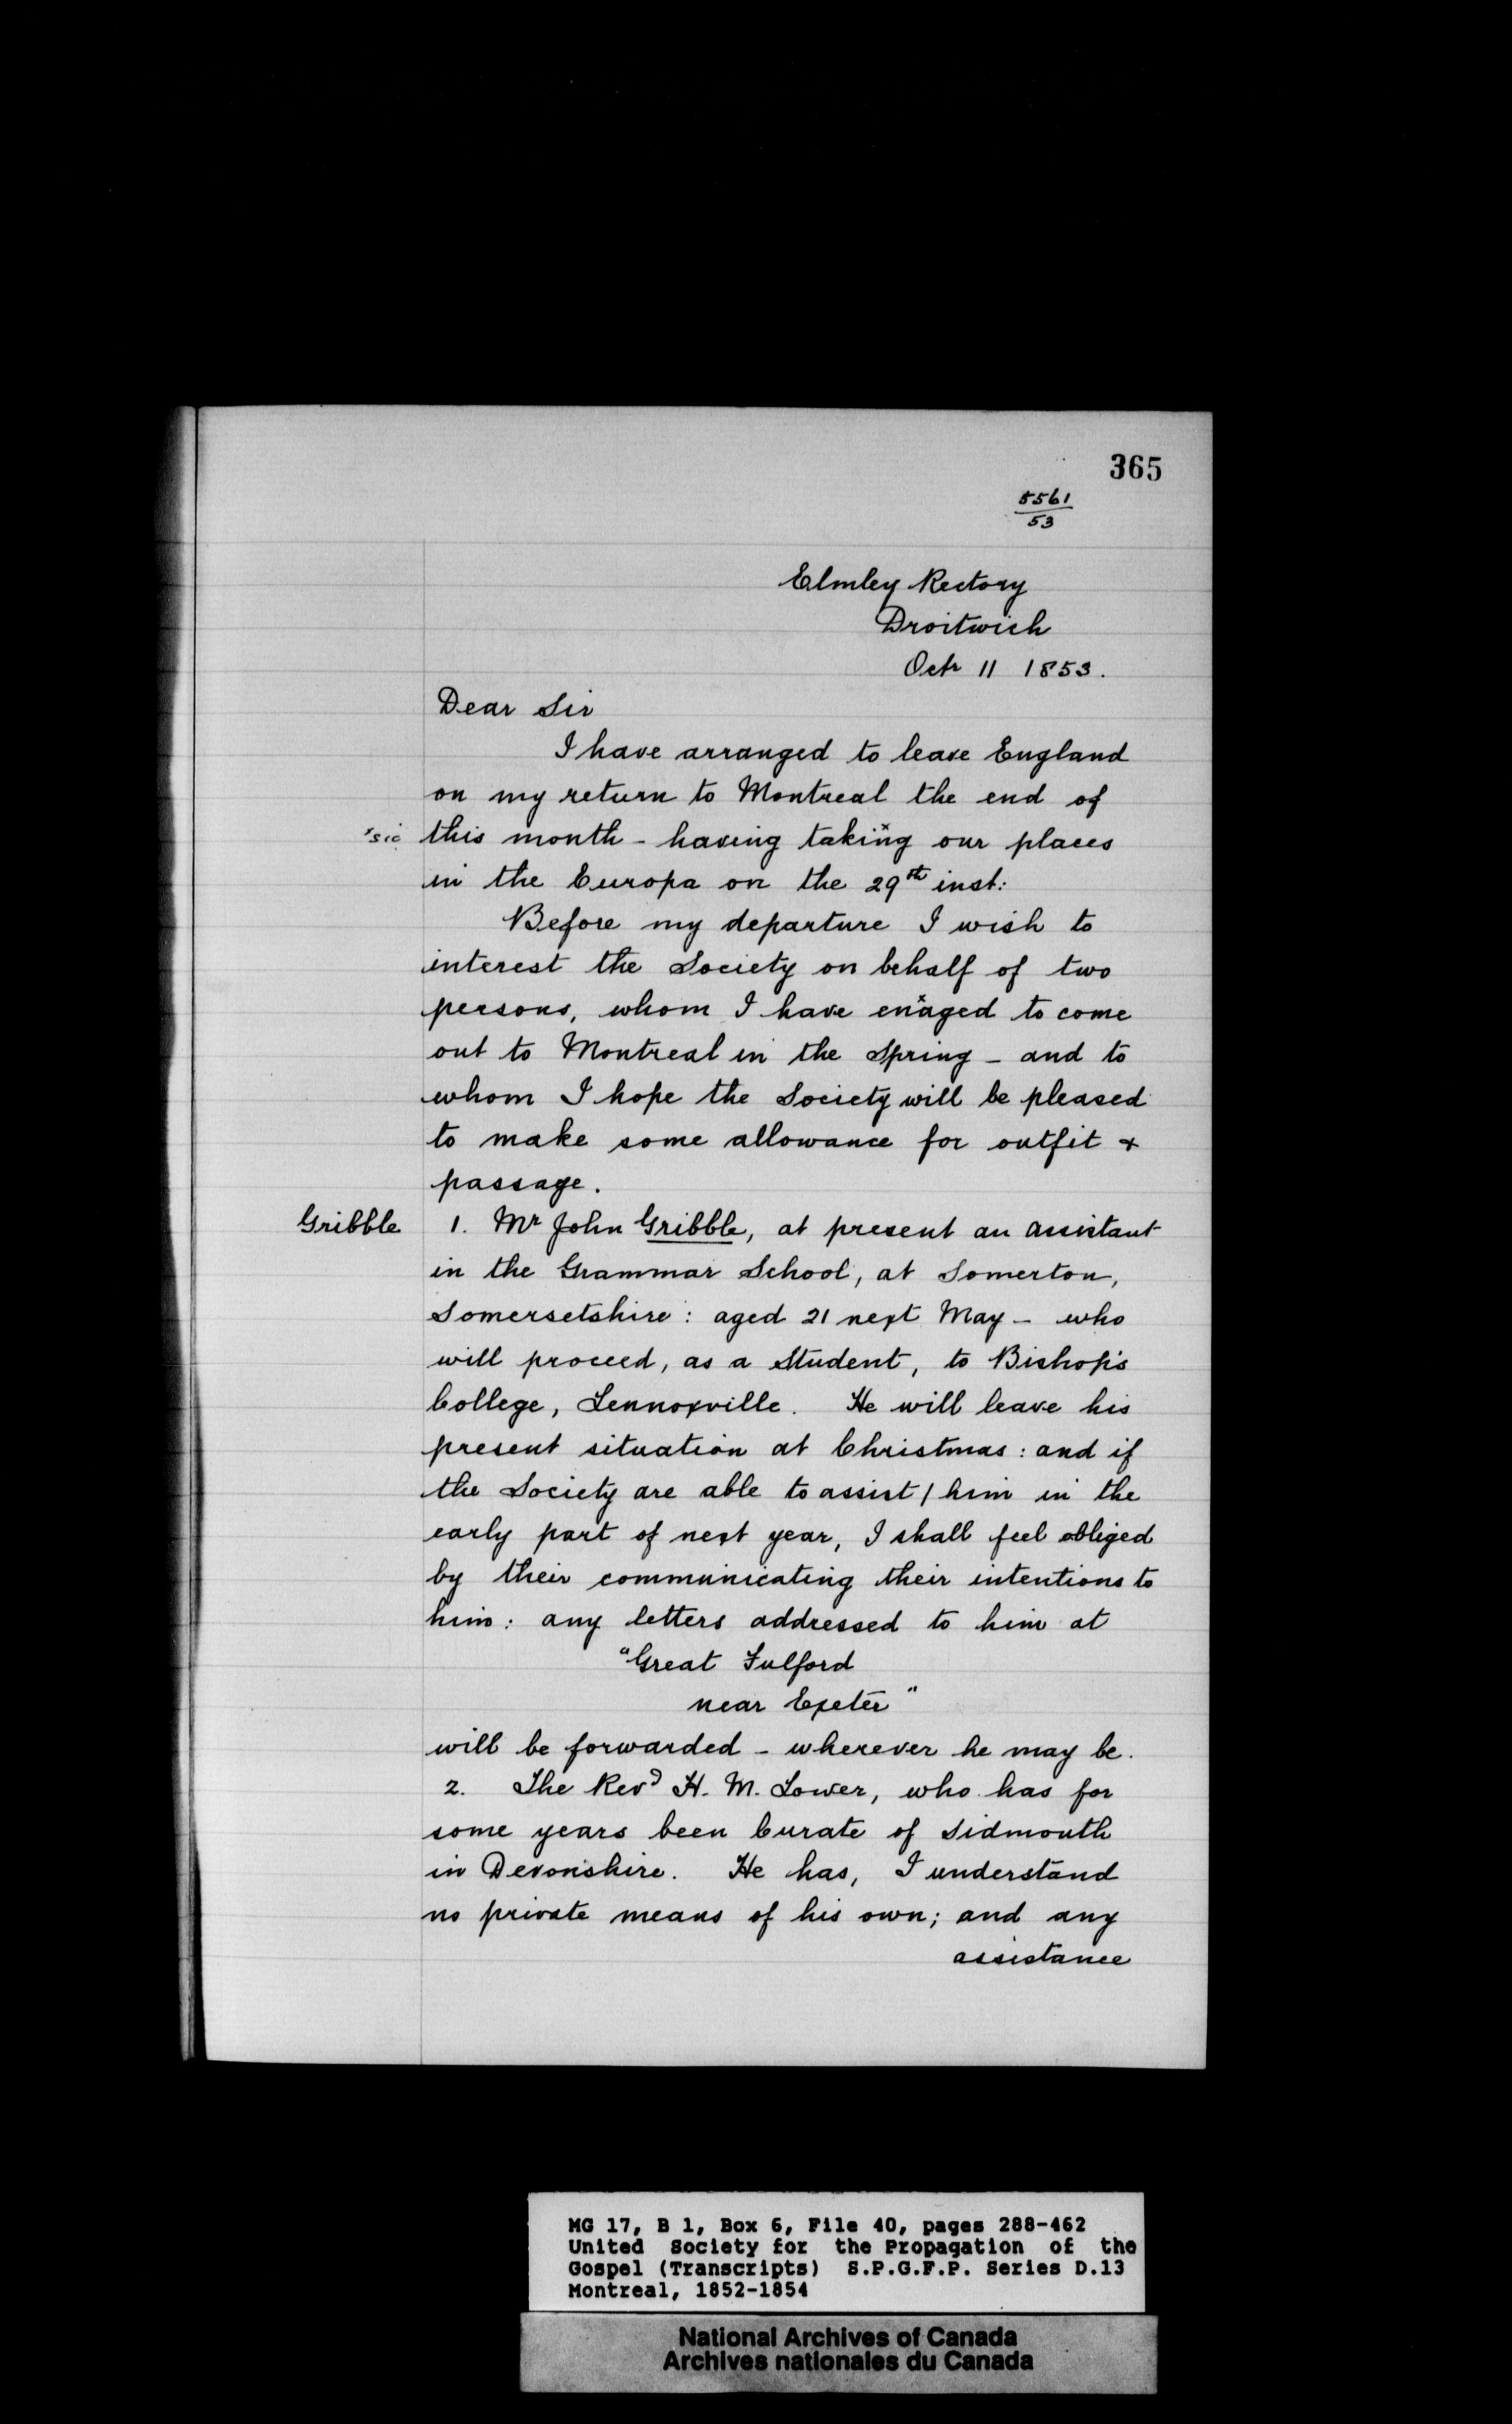 365
5561
53
Elmley Rectory
Droitwich
Octr 11 1853.
Dear Sir
I have arranged to leave England
on my return to Montreal the end of
xsic this month - having takinxg our places
in the Europa on the 29th inst:
Before my departure I wish to
interest the Society on behalf of two
persons, whom I have enxaged to come
out to Montreal in the Spring - and to
whom I hope the Society will be pleased
to make some allowance for outfit &
passage.
Gribble 1. Mr John Gribble, at present an assistant
in the Grammar School, at Somerton,
Somersetshire: aged 21 next May - who
will proceed, as a Student, to Bishop's
College, Lennoxville. He will leave his
present situation at Christmas: and if
the Society are able to assist / him in the
early part of next year, I shall feel obliged
by their communicating their intentions to
him: any letters addressed to him at
"Great Fulford
near Exeter"
will be forwarded - wherever he may be.
2. The Revd H. M. Lower, who has for
some years been Curate of Sidmouth
in Devonshire. He has, I understand
no private means of his own; and any
assistance
MG 17, B 1, Box 6, File 40, pages 288-462
United Society for the Propagation of the
Gospel (Transcripts) S.P.G.F.P. Series D.13
Montreal, 1852-1854
National Archives of Canada
Archives nationales du Canada